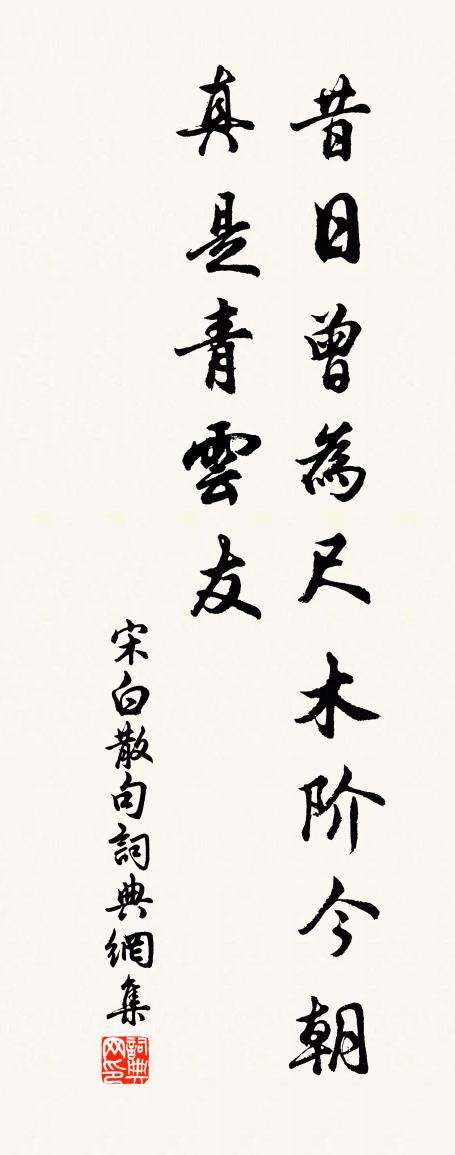 昔日曾為尺木阶今朝
真是青雲友
宋白散句詞典網集
詞典网印